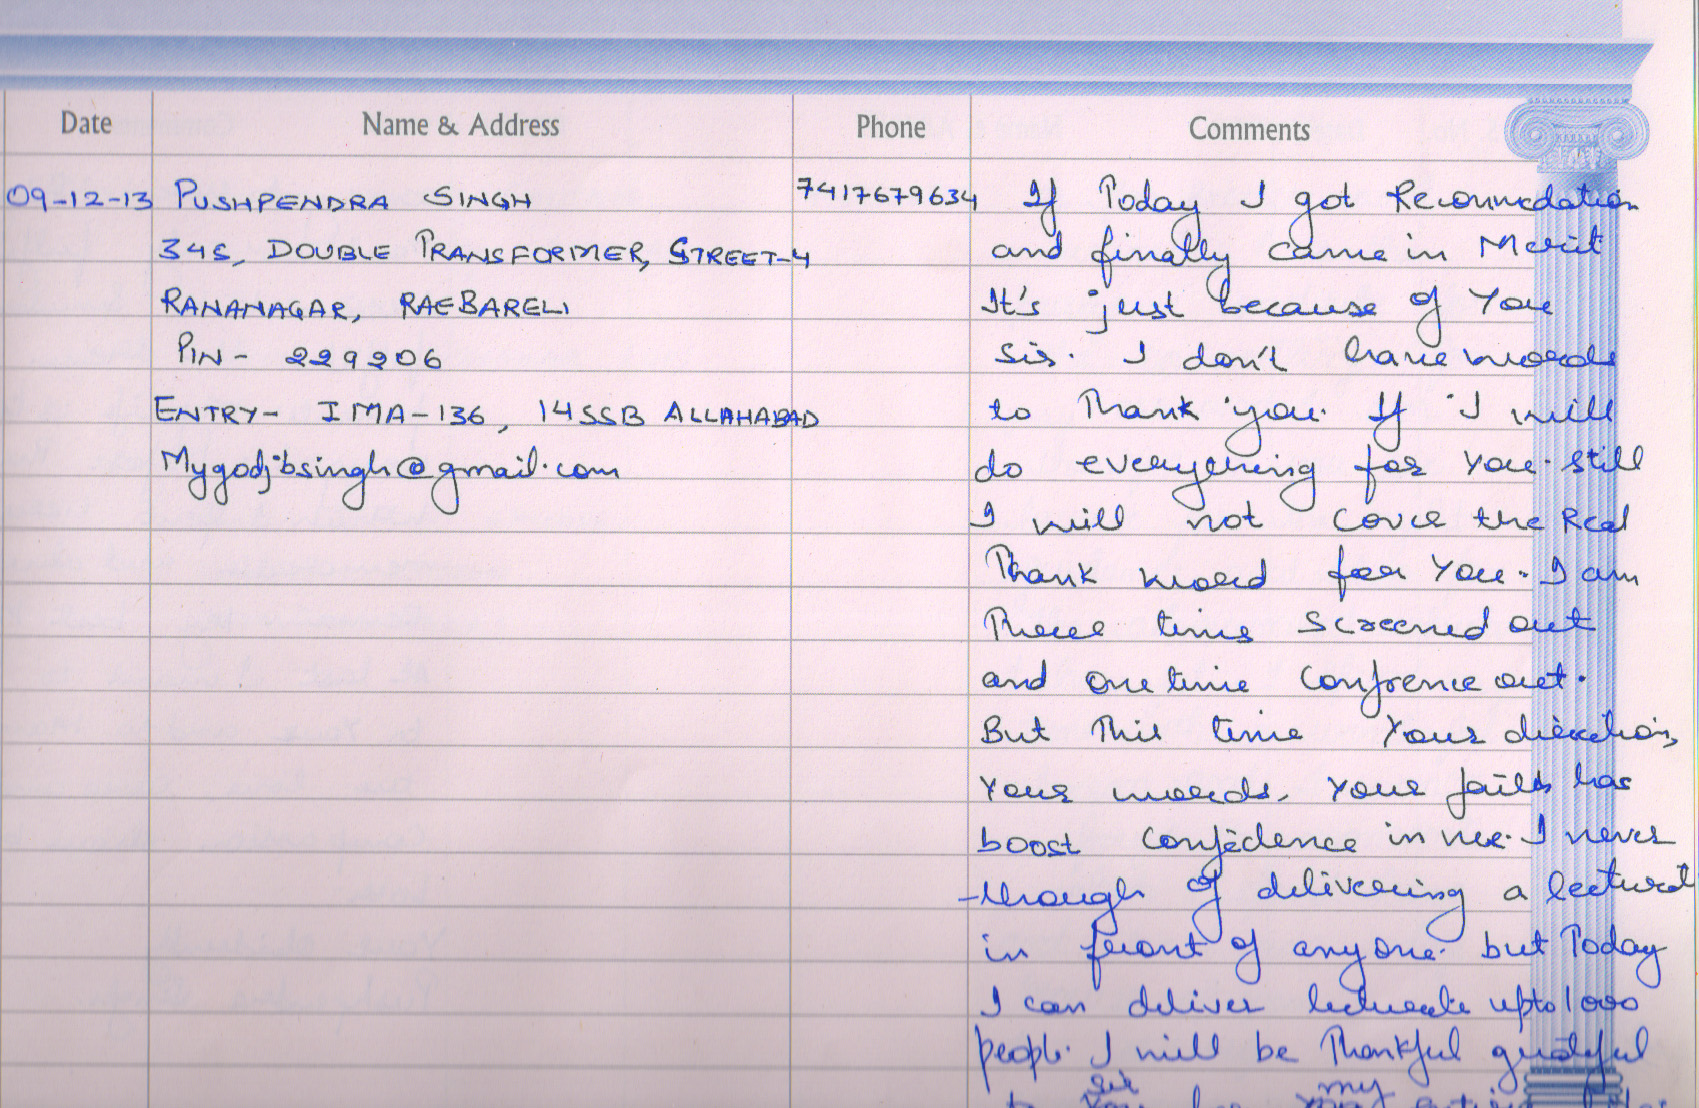 Date Name & Address Phone Comments
09-12-13 PUSHPENDRA SINGH 7417679634 If Today I got Recommedation
345, DOUBLE TRANSFORMER, STREET-4 and finally came in Merit
RANANAGAR, RAEBARELI It's just because of You
PIN- 229206 sir. I don't have words
ENTRY- IMA-136, 14SSB ALLAHABAD to Thank you. If I will
Mygodjbsingh@gmail.com do everything for you. still
I will not cover the Real
Thank word for You. I am
Three time screened out
and one time Confrence out.
But This time Your direction,
Your words, Your faith has
boost confidence in me. I never
through of delivering a lectural
in front of anyone. but Today
I can deliver lecturate upto 1000
people. I will be Thankful grateful
to you sir for my entire